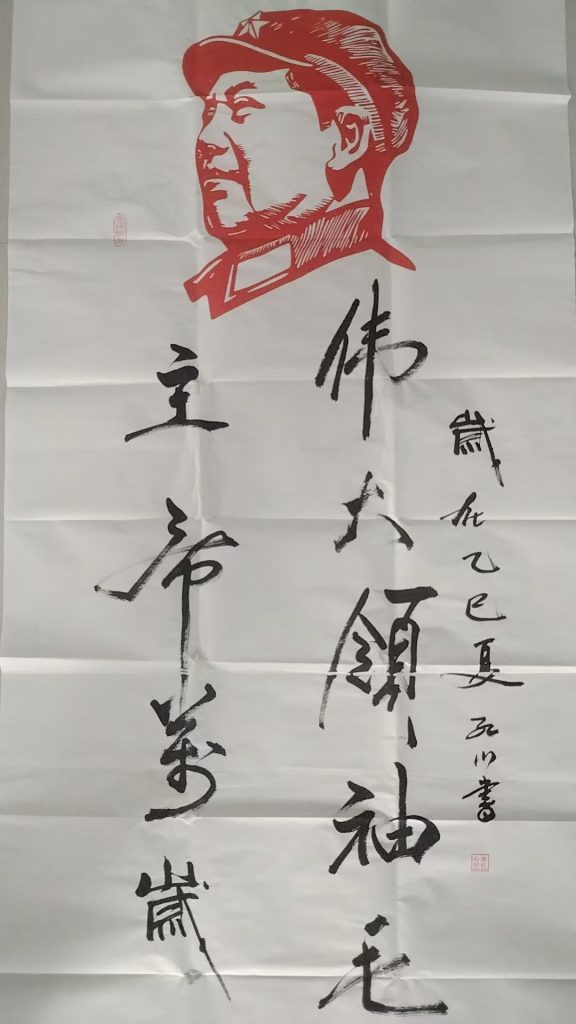 伟大領袖毛
主席萬歲
歲在乙巳夏 書